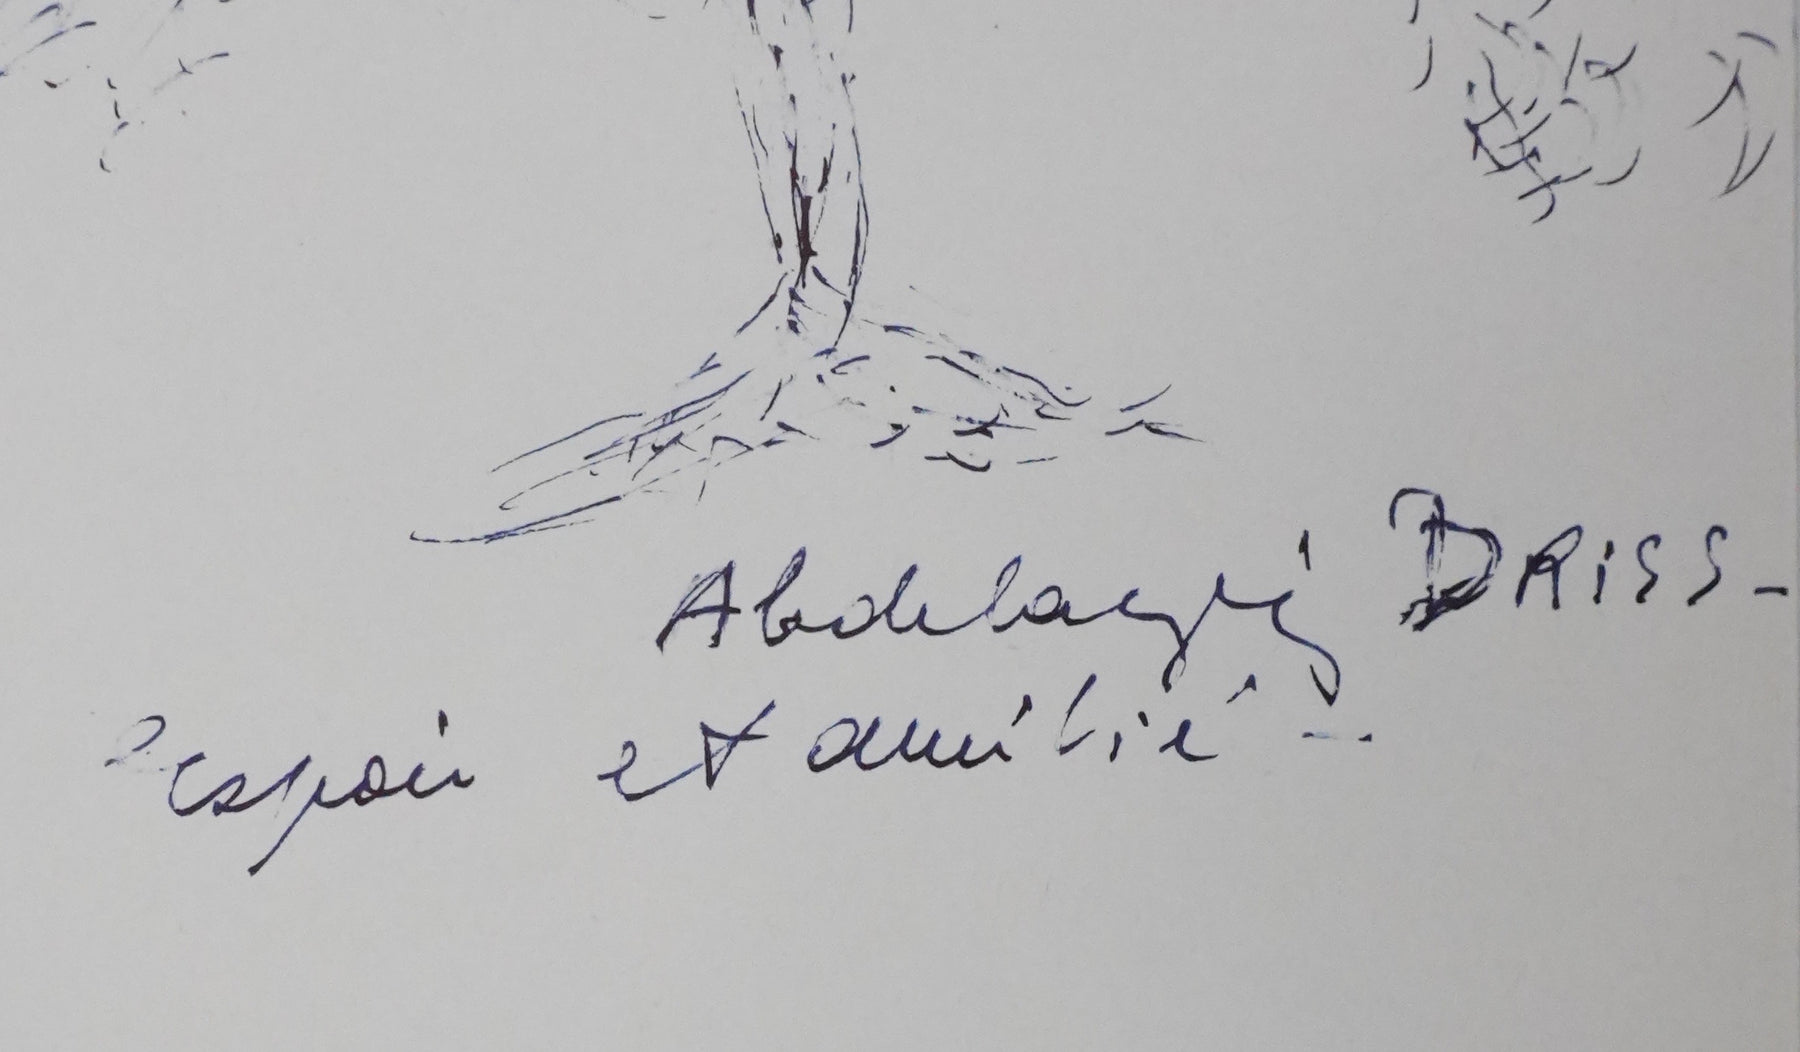 Abdelaziz DRiSS -
espoir et amitié -.